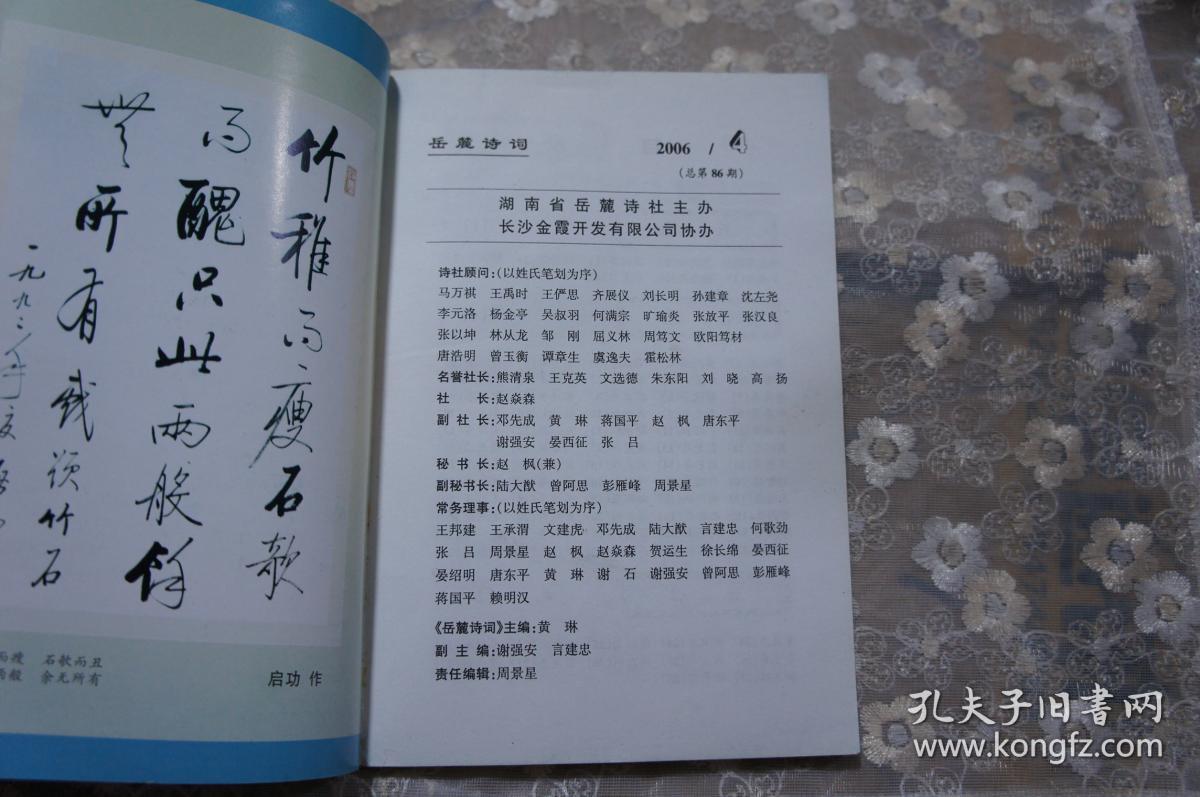 竹稚而瘦石欹
而醜只此兩般餘
無所有 戲題竹石
一九九二年夏
石欹而丑
余无所有
启功 作
岳麓诗词
2006 / 4
(总第86期)
湖南省岳麓诗社主办
长沙金霞开发有限公司协办
诗社顾问:(以姓氏笔划为序)
马万祺 王禹时 王俨思 齐展仪 刘长明 孙建章 沈左尧
李元洛 杨金亭 吴叔羽 何满宗 旷瑜炎 张放平 张汉良
张以坤 林从龙 邹 刚 屈义林 周笃文 欧阳笃材
唐浩明 曾玉衡 谭章生 虞逸夫 霍松林
名誉社长:熊清泉 王克英 文选德 朱东阳 刘 晓 高 扬
社 长:赵焱森
副 社 长:邓先成 黄 琳 蒋国平 赵 枫 唐东平
谢强安 晏西征 张 吕
秘 书 长:赵 枫(兼)
副秘书长:陆大猷 曾阿思 彭雁峰 周景星
常务理事:(以姓氏笔划为序)
王邦建 王承渭 文建虎 邓先成 陆大猷 言建忠 何歌劲
张 吕 周景星 赵 枫 赵焱森 贺运生 徐长绵 晏西征
晏绍明 唐东平 黄 琳 谢 石 谢强安 曾阿思 彭雁峰
蒋国平 赖明汉
《岳麓诗词》主编:黄 琳
副 主 编:谢强安 言建忠
责任编辑:周景星
孔夫子旧书网
www.kongfz.com